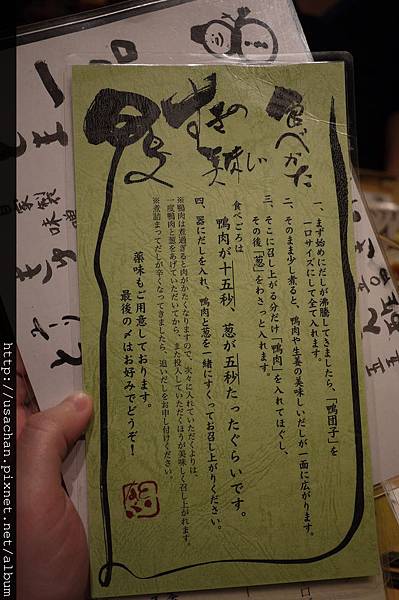 鴨すきの美味しい食べかた
一、まず始めにだしが沸騰してきましたら、「鴨団子」を
一口サイズにして全て入れます。
二、そのまま少し煮ると、鴨肉や生姜の美味しいだしが一面に広がります。
三、そこに召し上がる分だけ「鴨肉」を入れてほぐし、
その後「葱」をわさっと入れます。
食べごろは
鴨肉が十五秒、葱が五秒たったぐらいです。
四、器にだしを入れ、鴨肉と葱を一緒にすくってお召し上がりください。
※鴨肉は煮過ぎると肉がかたくなりますので、次々に入れていただくよりは、
一度鴨肉と葱をあげていただいてから、また投入していただくほうが美味しく召し上がれます。
※煮詰まってだしが辛くなってきましたら、追いだしをお申し付けください。
薬味もご用意しております。
最後の〆はお好みでどうぞ！
自家製味噌
http://usachan.pixnet.net/album